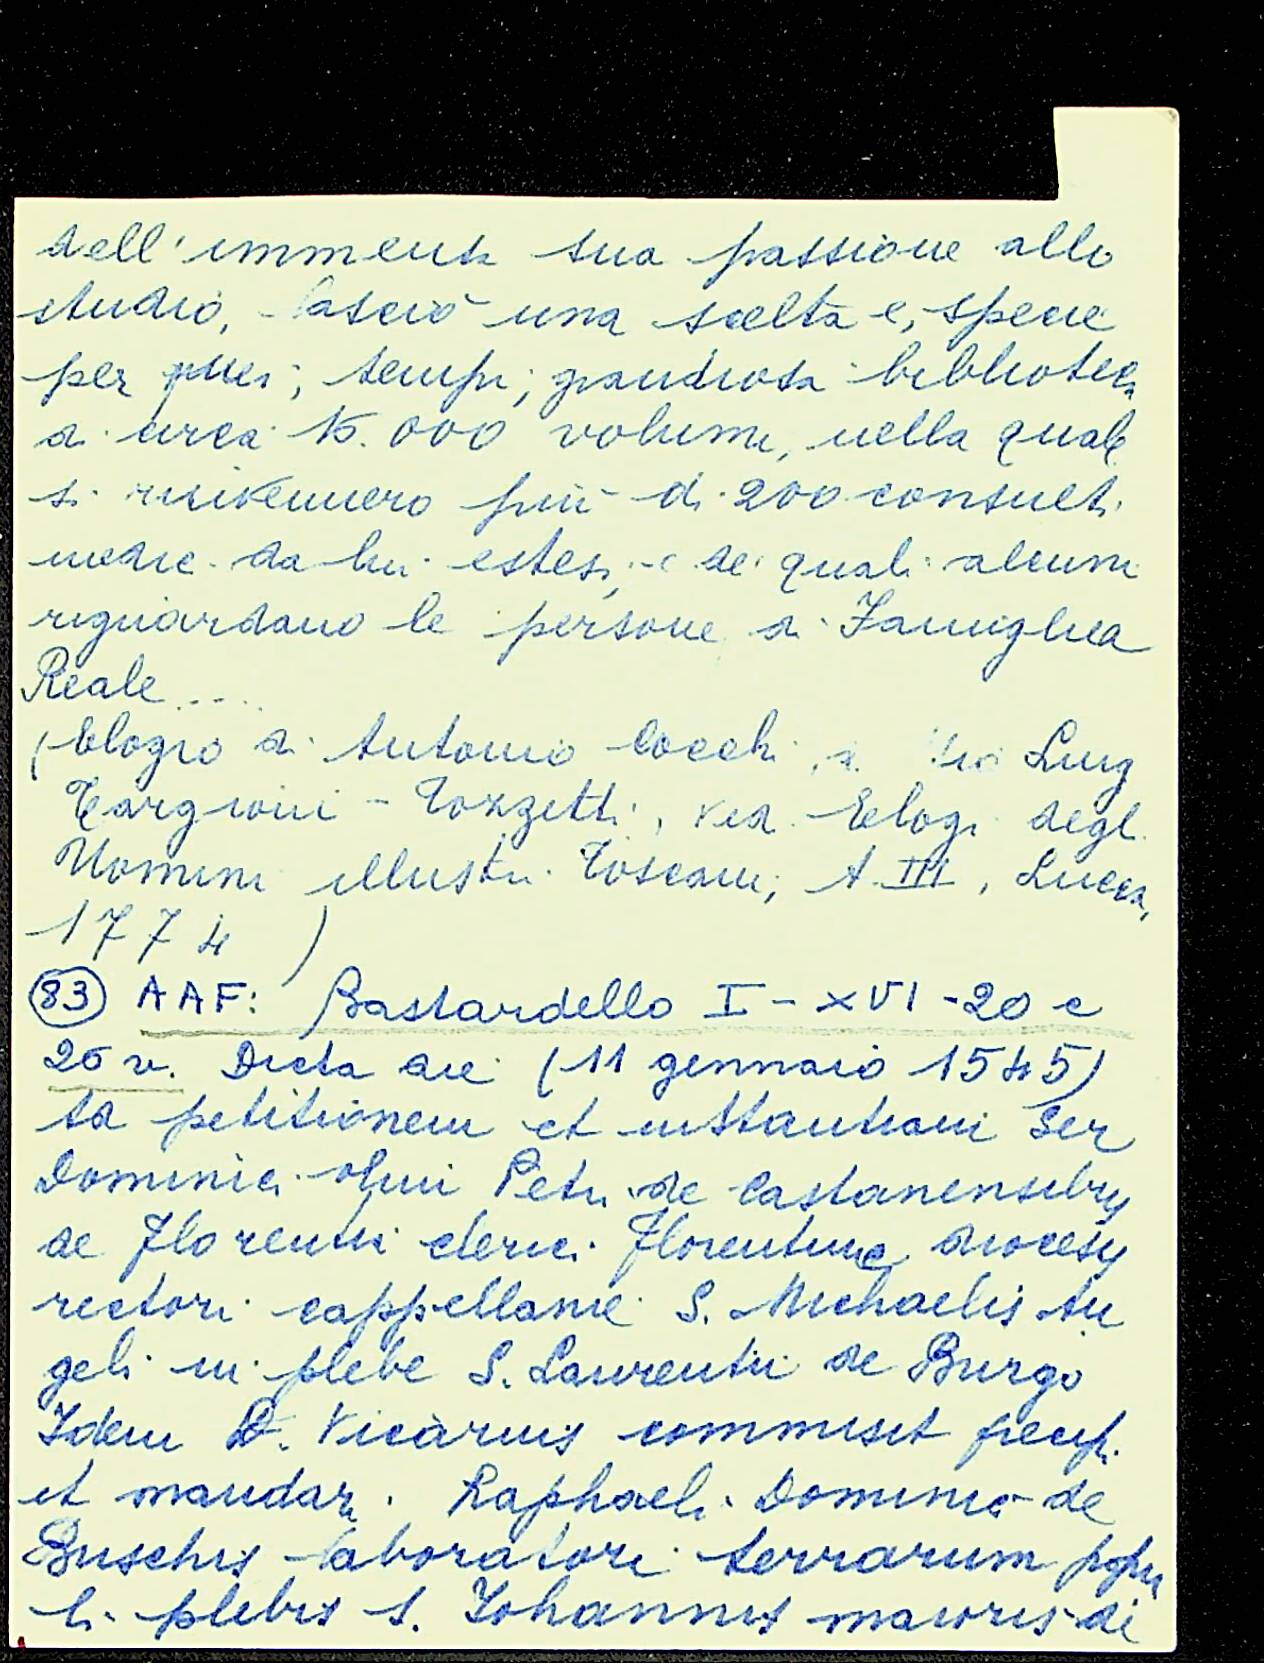 dell'immensa sua passione allo
studio, lasciò una scelta e, specie
per quei tempi, grandiosa biblioteca
di circa 15.000 volumi, nella quale
si rinvennero più di 200 consulti
medici da lui estesi, e de' quali alcuni
riguardano le persone di Famiglia
Reale ....
(Elogio di Antonio Cocchi, di Luigi
Targioni-Tozzetti, ved. Elogi degli
Uomini illustri Toscani, t. III, Lucca,
1774)
(83) AAF: Bastardello I-XVI-20 e
20 v. Dicta die (11 gennaio 1545)
ad petitionem et instantiam Ser
Dominici olim Petri de Castanensibus
de Florentia clerici Florentine diocesis
rectori cappellanie S. Michaelis An
geli in plebe S. Laurentii de Burgo
Idem D. Vicarius commisit precip.
et mandari Raphaeli Dominici de
Buschis laboratori terrarum popu
li plebis S. Johannis maioris di